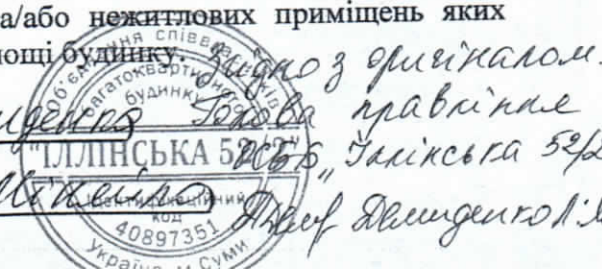 а/або нежитлових приміщень яких
ощі будинку. Згідно з оригіналом.
иденко Голова правління
ОСББ „Іллінська 52/2
Демиденко Л.
Об'єднання співвласників
багатоквартирного
будинку
"ІЛЛІНСЬКА 52/2"
Ідентифікаційний
код
40897351
Україна м. Суми